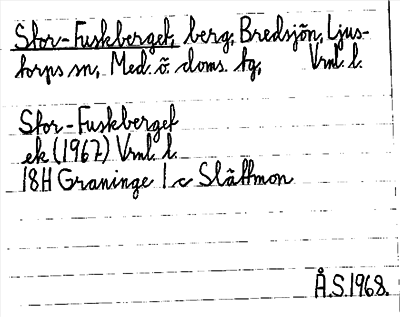 Stor-Fuskberget, berg, Bredsjön, Ljus-
torps sn, Med. ö. doms. tg, Vrnl. l.
Stor-Fuskberget
ek (1967) Vrnl. l.
18H Graninge 1 c Slättmon
Å.S.1968.